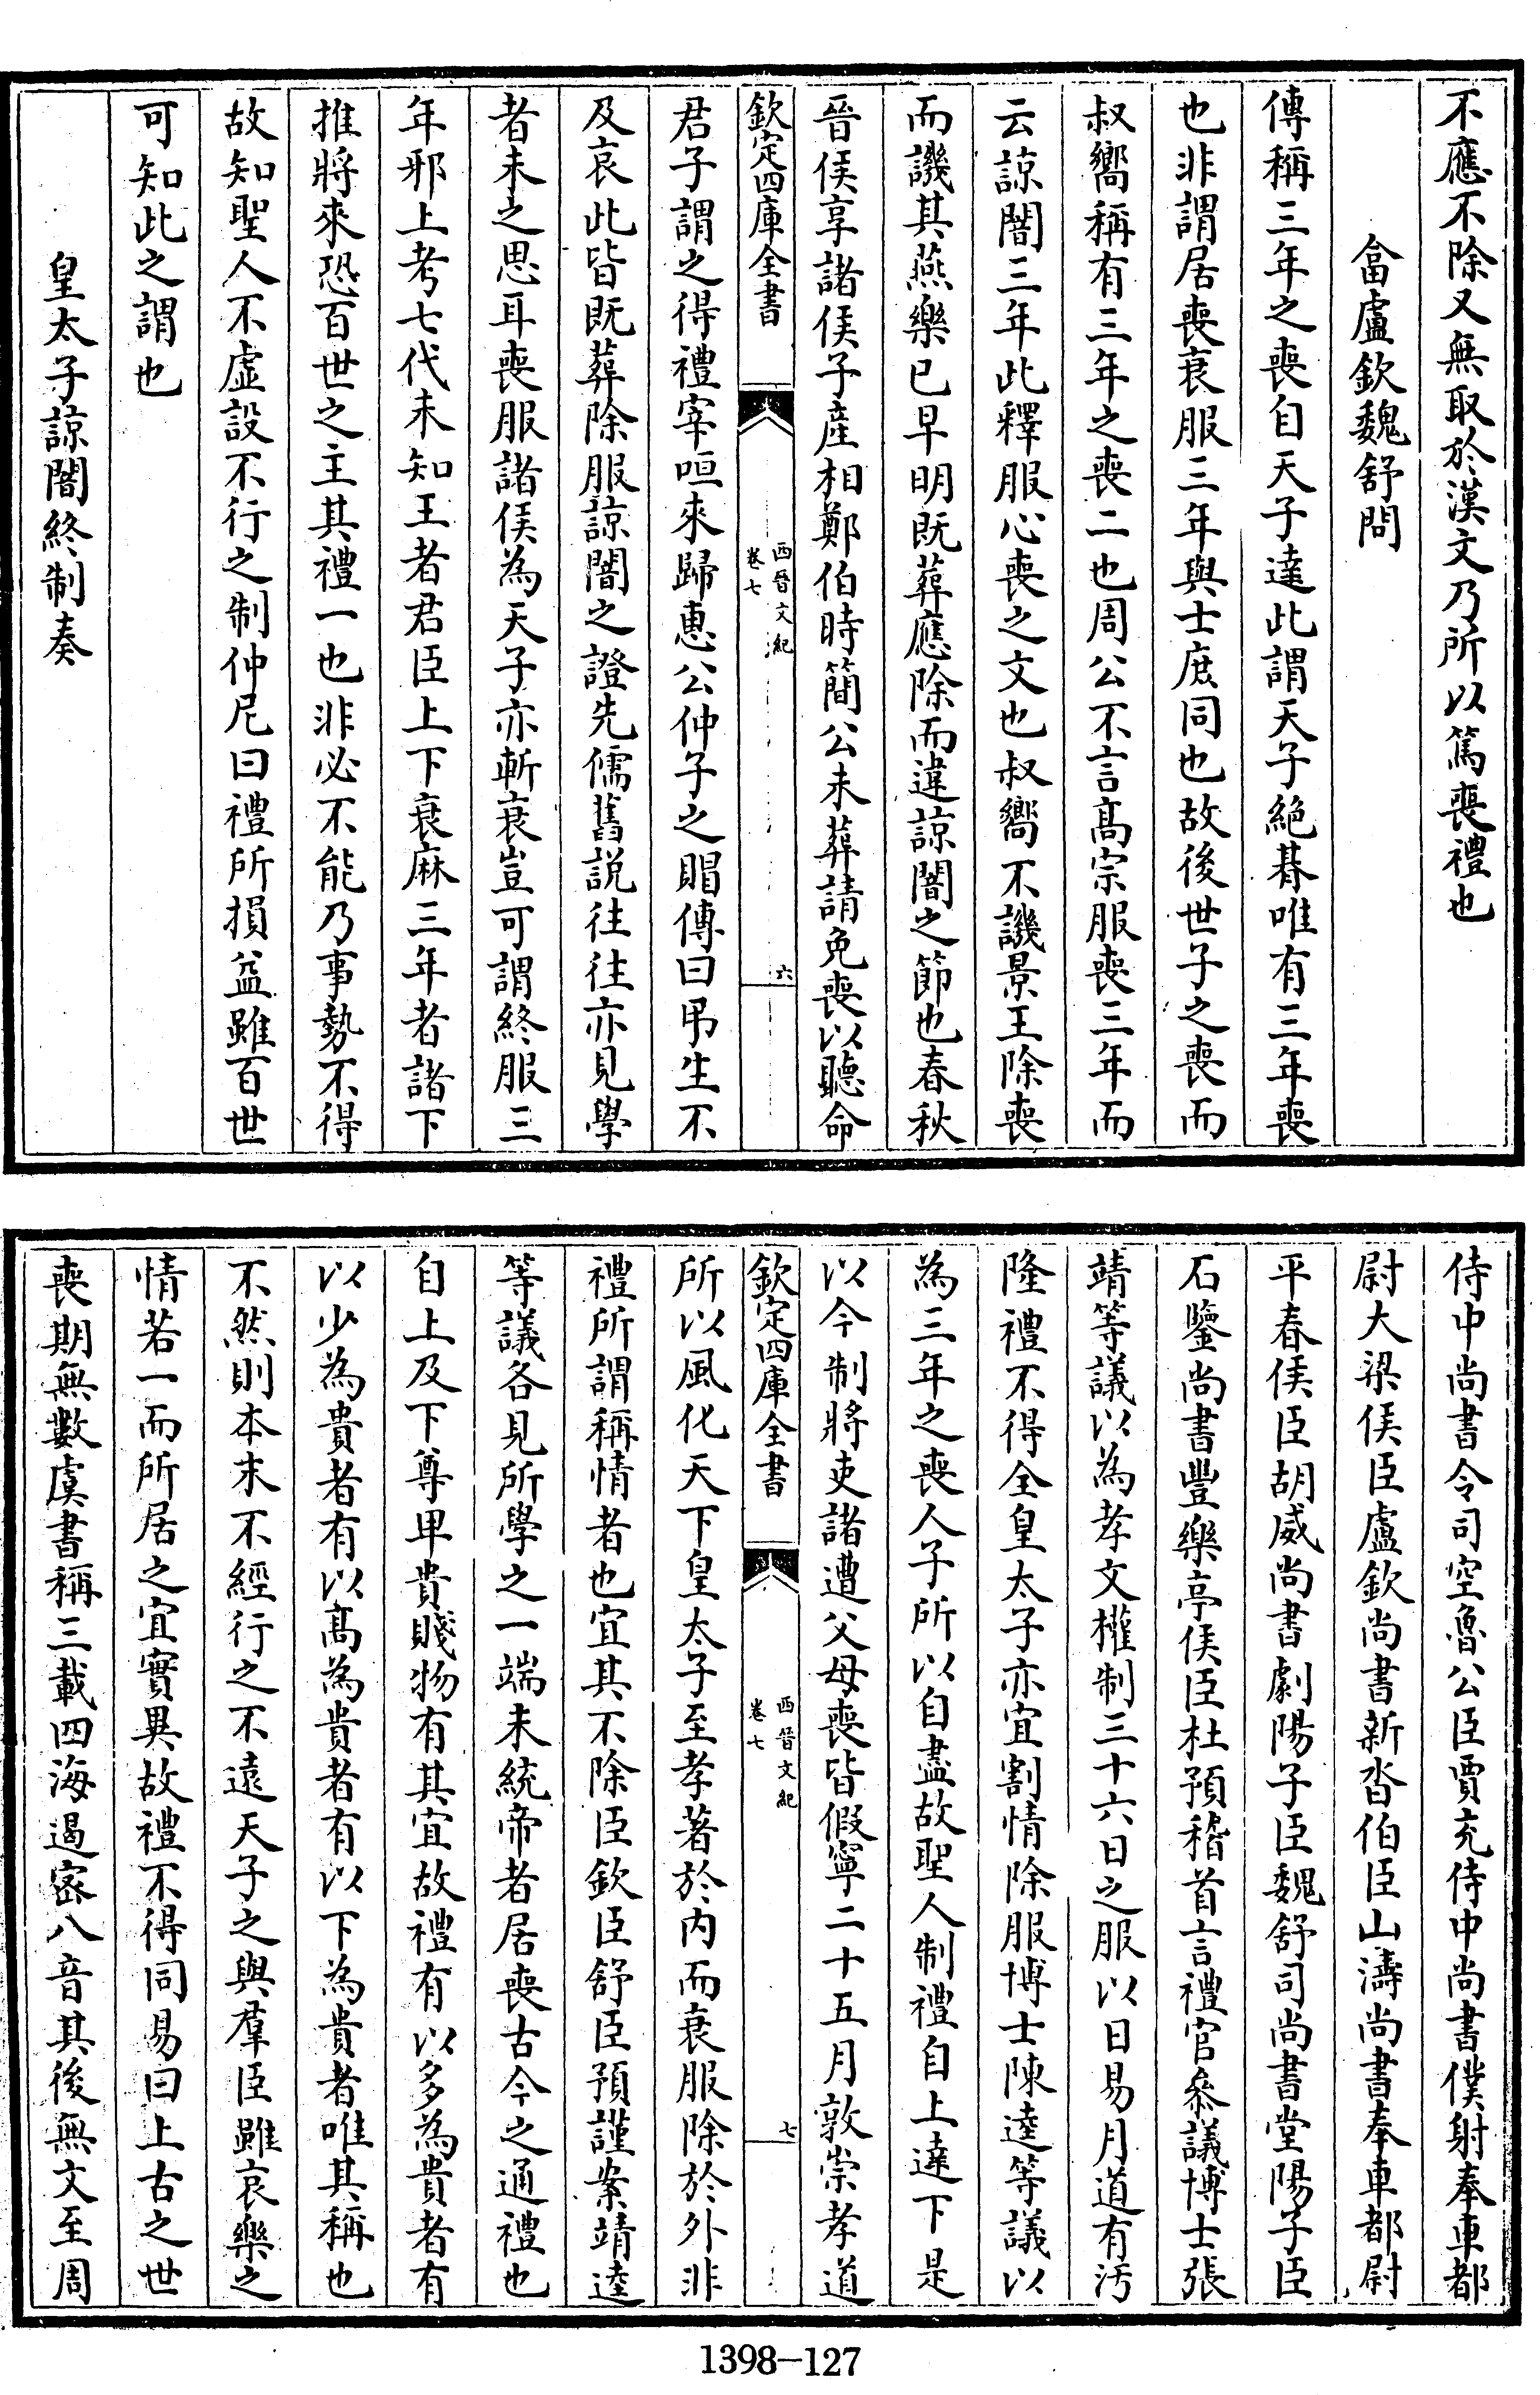 不應不除又無取於漢文乃所以篤喪禮也
畣盧欽魏舒問
傳稱三年之喪自天子達此謂天子絶朞唯有三年喪
也非謂居喪衰服三年與士庶同也故後世子之喪而
叔嚮稱有三年之喪二也周公不言髙宗服喪三年而
云諒闇三年此釋服心喪之文也叔嚮不譏景王除喪
而譏其燕樂已早明既葬應除而違諒闇之節也春秋
晉侯享諸侯子産相鄭伯時簡公未葬請免喪以聽命
欽定四庫全書
西晉文紀
卷七
六
君子謂之得禮宰咺來歸惠公仲子之賵傳曰弔生不
及哀此皆既葬除服諒闇之證先儒舊説往往亦見學
者未之思耳喪服諸侯為天子亦斬衰豈可謂終服三
年邪上考七代未知王者君臣上下衰麻三年者諸下
推將來恐百世之主其禮一也非必不能乃事勢不得
故知聖人不虚設不行之制仲尼曰禮所損益雖百世
可知此之謂也
皇太子諒闇終制奏
侍中尚書令司空魯公臣賈充侍中尚書僕射奉車都
尉大梁侯臣盧欽尚書新沓伯臣山濤尚書奉車都尉
平春侯臣胡威尚書劇陽子臣魏舒司尚書堂陽子臣
石鑒尚書豐樂亭侯臣杜預稽首言禮官叅議博士張
靖等議以為孝文權制三十六日之服以日易月道有污
隆禮不得全皇太子亦宜割情除服博士陳逵等議以
為三年之喪人子所以自盡故聖人制禮自上達下是
以今制將吏諸遭父母喪皆假寧二十五月敦崇孝道
欽定四庫全書
西晉文紀
卷七
七
所以風化天下皇太子至孝著於内而衰服除於外非
禮所謂稱情者也宜其不除臣欽臣舒臣預謹案靖逵
等議各見所學之一端未統帝者居喪古今之通禮也
自上及下尊卑貴賤物有其宜故禮有以多為貴者有
以少為貴者有以髙為貴者有以下為貴者唯其稱也
不然則本末不經行之不遠天子之與羣臣雖哀樂之
情若一而所居之宜實異故禮不得同易曰上古之世
喪期無數虞書稱三載四海遏密八音其後無文至周
1398-127